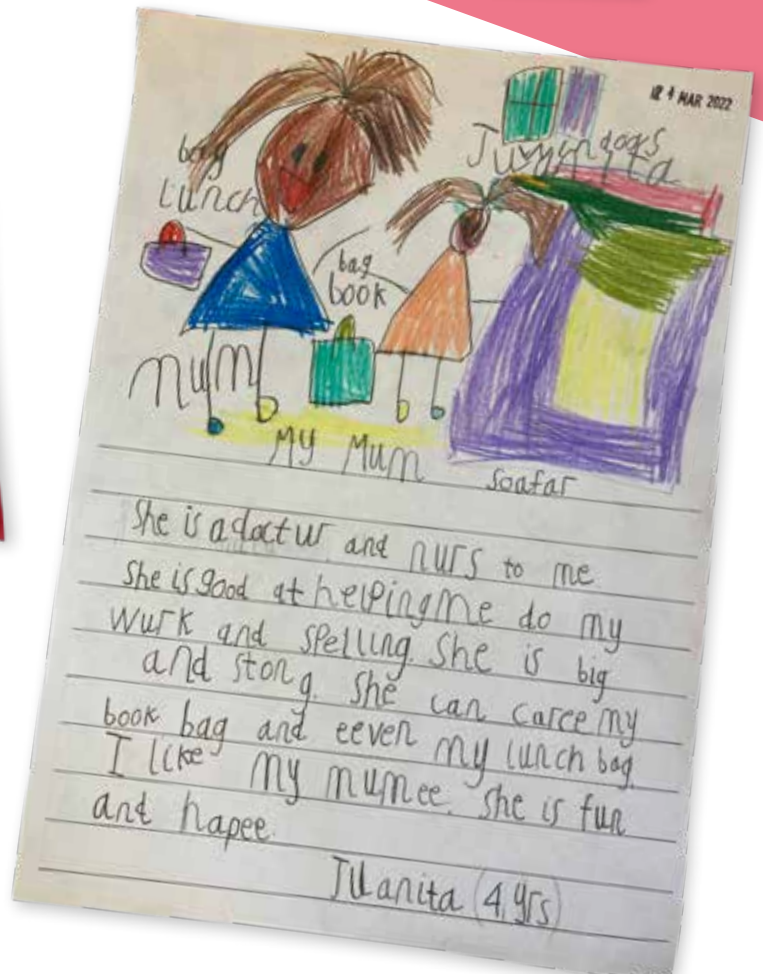 24 MAR 2022
bag
Lunch
Juanita
bag
book
mum
My Mum
Soafar
She is a doctur and nurs to me
She is good at helping me do my
wurk and spelling. She is big
and stong. She can caree my
book bag and eeven my lunch bag.
I like my mumee. She is fun
and hapee.
Juanita (4 yrs)